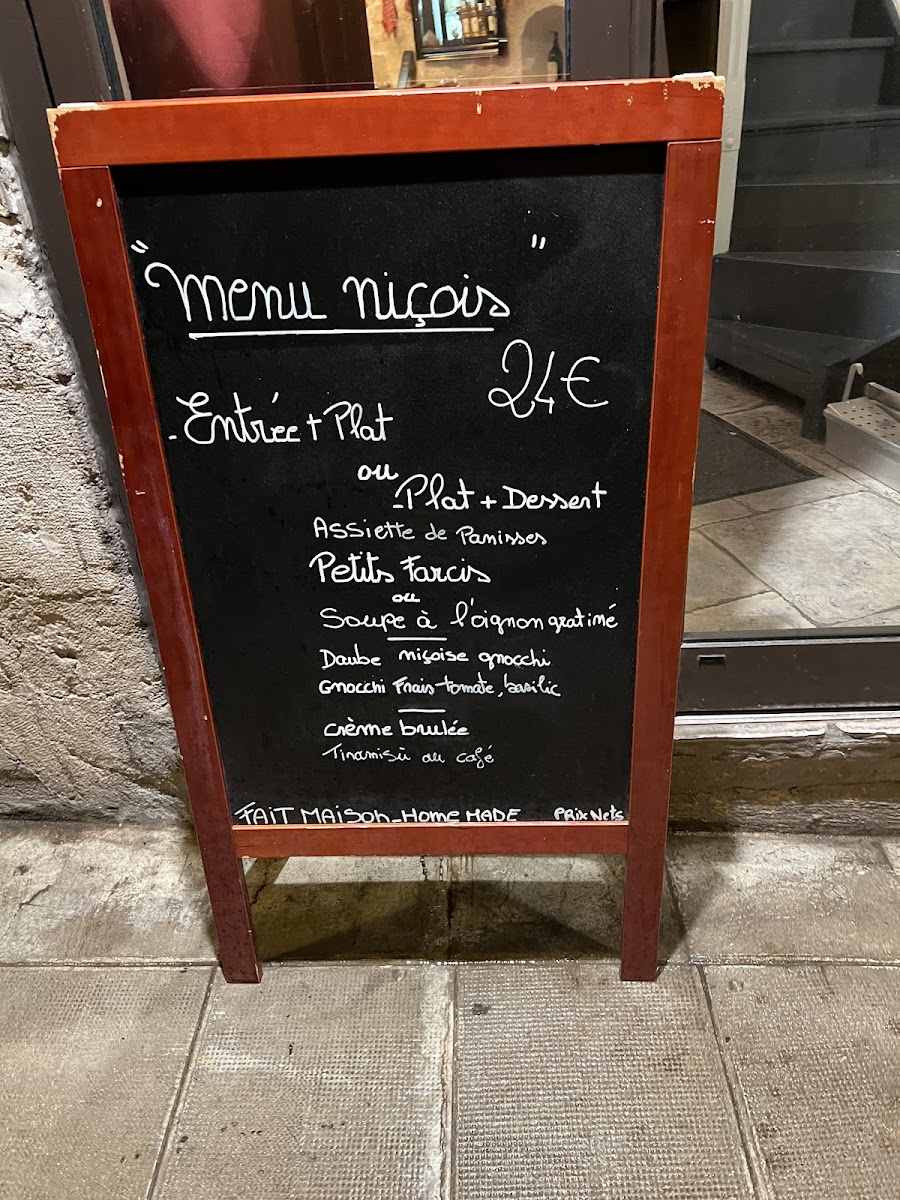 "Menu niçois"
24€
- Entrée + Plat
ou
- Plat + Dessert
Assiette de Panisses
Petits Farcis
ou
Soupe à l'oignon gratiné
Daube niçoise gnocchi
Gnocchi Frais tomate, basilic
crème brulée
Tiramisù au café
FAIT MAISON - HOME MADE PRIX Nets